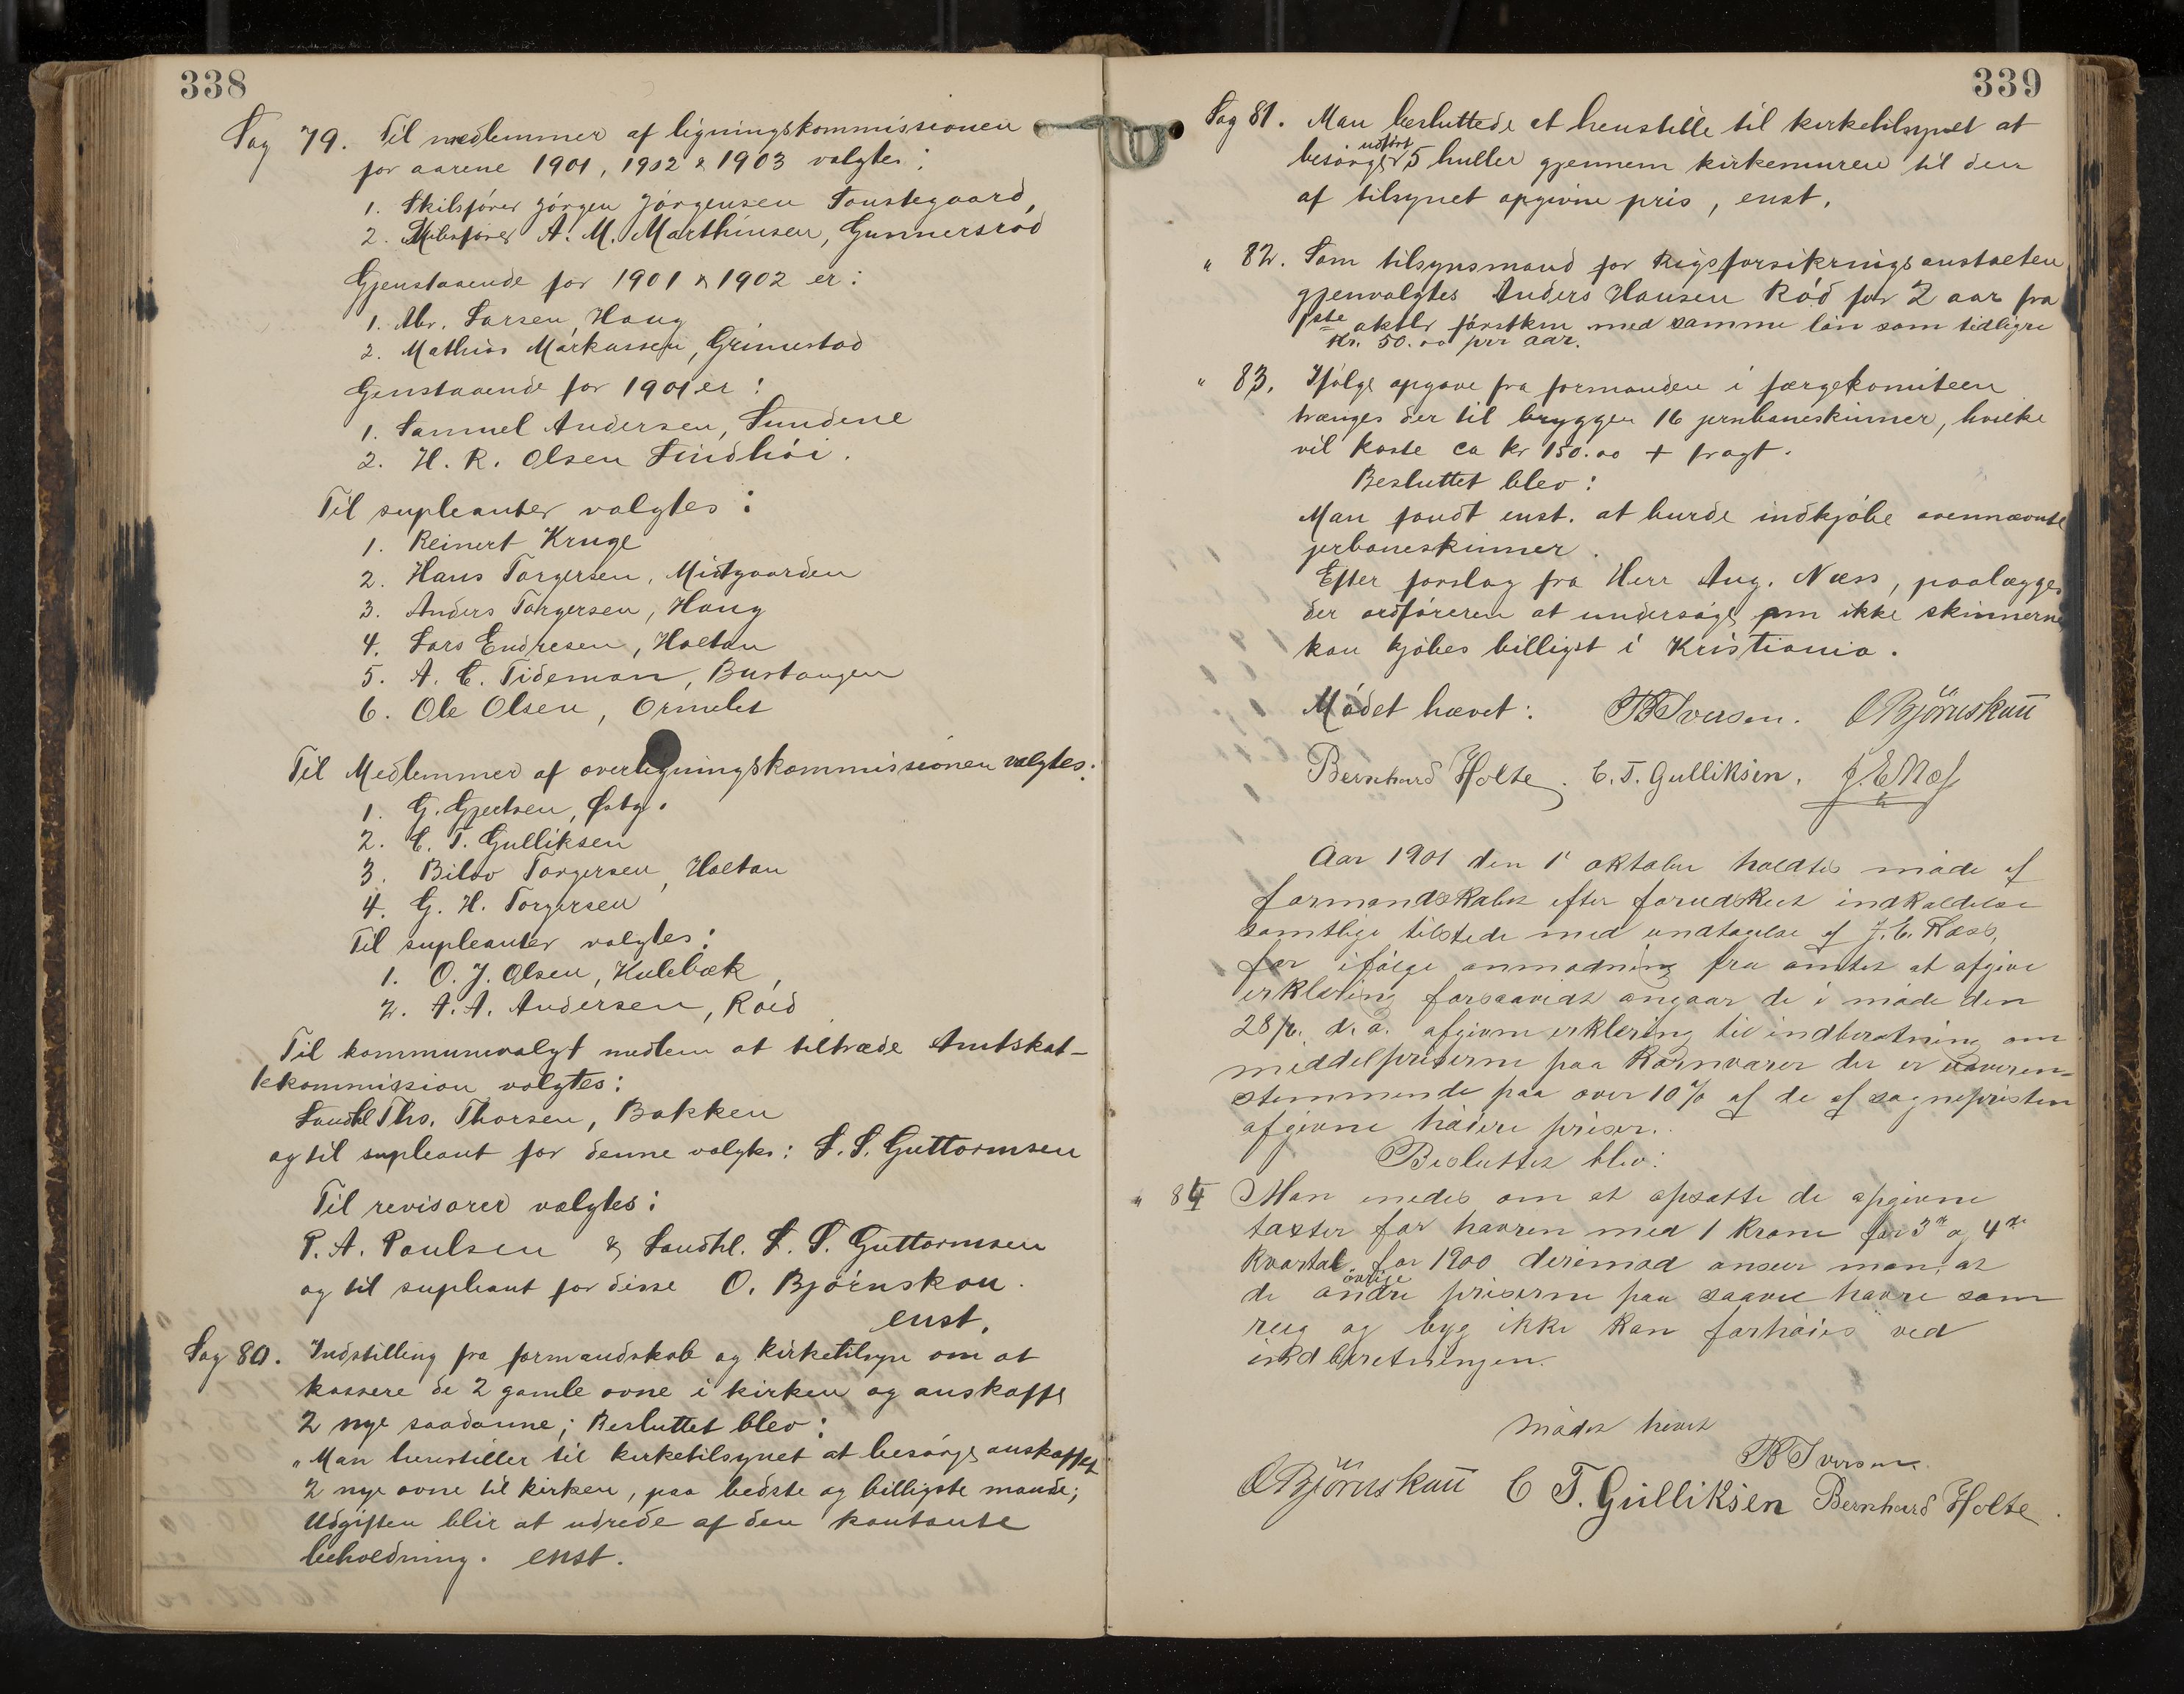 338
Sag 79. Til medlemmer af ligningskommissionen
for aarene 1901, 1902 & 1903 valgtes:
1. Skibsfører Jörgen Jörgensen Tonstegaard,
2. Skibsfører A. M. Marthinsen, Gunnersröd
Gjenstaaende for 1901 & 1902 er:
1. Abr. Larsen, Haug
2. Mathias Markussen, Grimestad
Genstaaende for 1901 er:
1. Samuel Andersen, Sundene
2. H. R. Olsen Lindhöi.
Til supleanter valgtes:
1. Reinert Kruge
2. Hans Torgersen, Midtgaarden
3. Anders Torgersen, Haug
4. Lars Endresen, Holtan
5. A. C. Tideman, Burtangen
6. Ole Olsen, Ormelet
Til Medlemmer af overligningskommissionen valgtes:
1. G. Gjertsen, Østg.
2. C. T. Gulliksen
3. Bilov Torgersen, Holtan
4. G. H. Torgersen
Til supleanter valgtes:
1. O. J. Olsen, Kulebæk,
2. A. A. Andersen, Röed
Til kommunevalgt medlem at tiltræde Amtskat-
tekommission valgtes:
Landhl Ths. Thorsen, Bakken
og til supleant for denne valgtes: S. S. Guttormsen
Til revisorer valgtes:
P. A. Paulsen & Landhl. S. S. Guttormsen
og til supleant for disse O. Bjørnskau.
enst.
Sag 80. Indstilling fra formandskab og kirketilsyn om at
kassere de 2 gamle ovne i kirken og anskaffe
2 nye saadanne; Besluttet blev:
„Man henstiller til kirketilsynet at besörge anskaffet
2 nye ovne til kirken, paa bedste og billigste maade;
Udgiften blir at udrede af den kontante
beholdning. enst.
339
Sag 81. Man besluttede at henstille til kirketilsynet at
besörget udfört 5 huller gjennem kirkemuren til den
af tilsynet opgivne pris, enst.
„ 82. Som tilsynsmand for Rigsforsikringsanstalten
gjenvalgtes Anders Hansen Röd for 2 aar fra
1ste oktbr förstkm med samme lön som tidligre
Kr. 50.00 prr aar.
„ 83. Ifölge opgave fra formanden i færgekomiteen
trænges der til bryggen 16 jernbaneskinner, hvilke
vil koste ca kr 150.00 + fragt.
Besluttet blev:
Man fandt enst. at burde indkjöbe ovennævnte
jerbaneskinner.
Efter forslag fra Herr Aug. Næss, paalægges
der ordföreren at undersöge om ikke skinnerne
kan kjöbes billigst i Kristiania.
Mödet hævet: B Iversen. O Björnskau
Bernhard Holte. C. T. Gulliksen. J. E. Næss
Aar 1901 den 1' oktober holdtes möde af
formandskabet efter forudskeet indkaldelse
samtlige tilstede med undtagelse af J. E. Næss,
for ifölge anmodning fra amtet at afgive
erklæring forsaavidt angaar de i möde den
28/6. d. a. afgivne erklæring til indberetning om
middelpriserne paa Kornvarer der er uoveren-
stemmende paa over 10 % af de af sognepresten
afgivne höiere priser.
Besluttet blev:
„ 84 Man enedes om at opsatte de opgivne
taxter for havren med 1 krone for 3de og 4de
kvartal for 1900 derimod anser man, at
de andre övrige priserne paa saavel havre som
rug og byg ikke kan forhöies ved
indberetningen.
Mödet hævet
B Iversen
O Björnskau C T. Gulliksen Bernhard Holte.